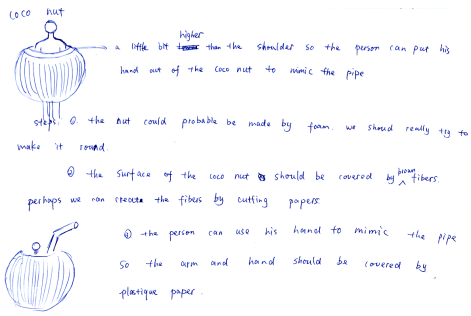 coco nut
higher
a little bit than the shoulder so the person can put his
hand out of the coco nut to mimic the pipe
steps: ① the nut could probable be made by foam. we should really try to
make it round.
② the surface of the coco nut should be covered by brown fibers.
perhaps we can create the fibers by cutting papers.
③ the person can use his hand to mimic the pipe
so the arm and hand should be covered by
plastique paper.